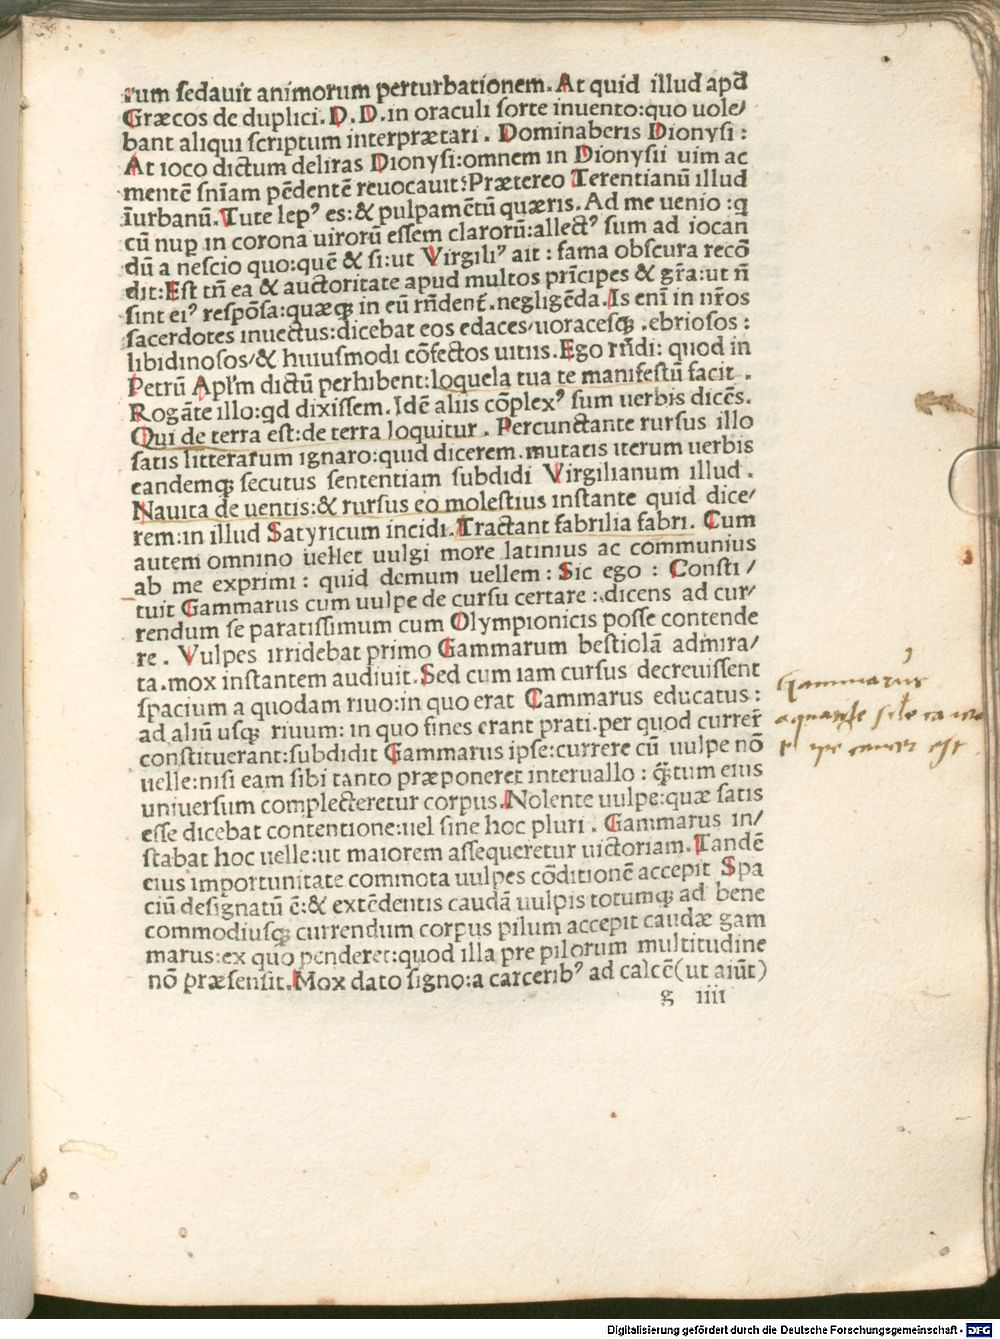 rum sedauit animorum perturbationem. At quid illud apđ
Græcos de duplici. D. D. in oraculi sorte inuento: quo uole/
bant aliqui scriptum interprætari. Dominaberis Dionysi:
At ioco dictum deliras Dionysi: omnem in Dionysii uim ac
mentē sn̄iam pēdentē reuocauit? Prætereo Terentianū illud
īurbanū. Tute lepꝰ es: & pulpamētū quæris. Ad me uenio: q
cū nuꝑ in corona uirorū essem clarorū: allectꝰ sum ad iocan
dū a nescio quo: quē & si: ut Virgiliꝰ ait: fama obscura recō
dit: Est tn̄ ea & auctoritate apud multos prīcipes & gr̄a: ut n̄
sint eiꝰ respōsa: quæqꝫ in eū rn̄dent̄. negligēda. Is enī in nr̄os
sacerdotes inuectus: dicebat eos edaces/uoracesqꝫ. ebriosos:
libidinosos/& huiusmodi cōfectos uitiis. Ego rn̄di: quod in
Petrū Apl̄m dictū perhibent: loquela tua te manifestū facit.
Rogāte illo: qd dixissem. Idē aliis cōplexꝰ sum uerbis dicēs.
Qui de terra est: de terra loquitur. Percunctante rursus illo
satis litterarum ignaro: quid dicerem. mutatis iterum uerbis
eandemqꝫ secutus sententiam subdidi Virgilianum illud.
Nauita de uentis: & rursus eo molestius instante quid dice/
rem: in illud Satyricum incidi. Tractant fabrilia fabri. Cum
autem omnino uellet uulgi more latinius ac communius
ab me exprimi: quid demum uellem: Sic ego: Consti/
tuit Gammarus cum uulpe de cursu certare: dicens ad cur/
rendum se paratissimum cum Olympionicis posse contende
re. Vulpes irridebat primo Gammarum bestiolā admira/
ta. mox instantem audiuit. Sed cum iam cursus decreuissent
spacium a quodam riuo: in quo erat Cammarus educatus:
ad aliū usqꝫ riuum: in quo fines erant prati. per quod currer̄
constituerant: subdidit Gammarus ipse: currere cū uulpe nō
uelle: nisi eam sibi tanto præponeret interuallo: q̄tum eius
uniuersum complecteretur corpus. Nolente uulpe: quæ satis
esse dicebat contentione: uel sine hoc pluri. Gammarus in/
stabat hoc uelle: ut maiorem assequeretur uictoriam. Tandē
eius importunitate commota uulpes cōditionē accepit Spa
ciū designatū ē: & extēdentis caudā uulpis totumqꝫ ad bene
commodiusqꝫ currendum corpus pilum accepit caudæ gam
marus: ex quo penderet: quod illa pre pilorum multitudine
nō præsensit. Mox dato signo: a carceribꝰ ad calcē (ut aiūt)
g iiii
Gammarus
cancer est
Digitalisierung gefördert durch die Deutsche Forschungsgemeinschaft - DFG